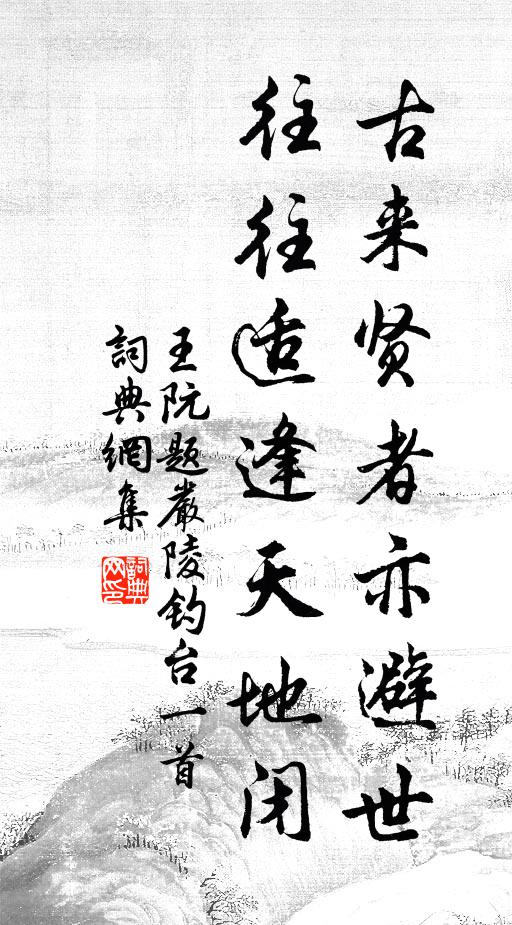 古来贤者亦避世
往往适逢天地闭
王阮题嚴陵钓台一首
詞典網集
詞典
网印